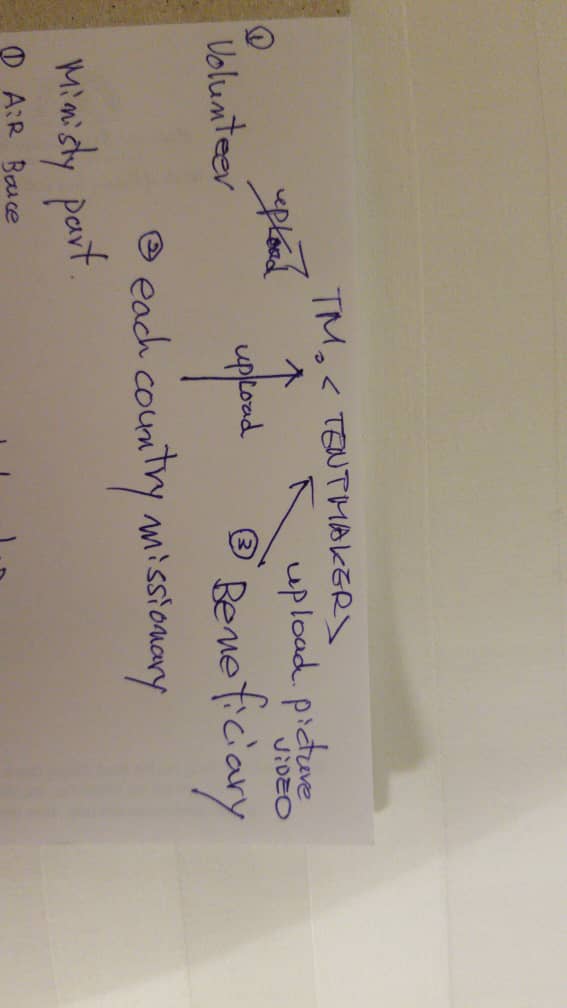 TM. < TENTMAKERS>
① Volunteer
upload
upload
upload. picture
VIDEO
③ Beneficiary
② each country missionary
Ministy part.
① AiR